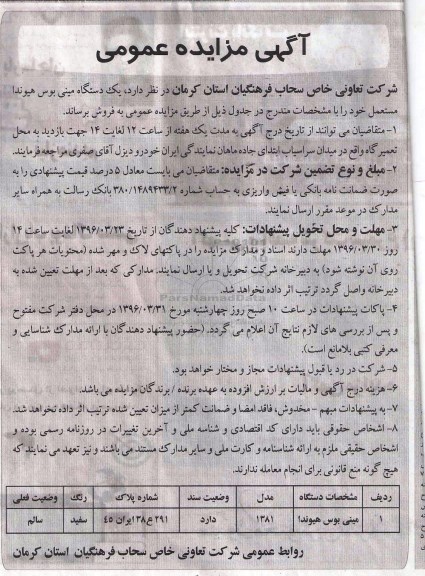 آگهی مزایده عمومی
شرکت تعاونی خاص سحاب فرهنگیان استان کرمان در نظر دارد، یک دستگاه مینی بوس هیوندا
مستعمل خود را با مشخصات مندرج در جدول ذیل از طریق مزایده عمومی به فروش برساند.
۱- متقاضیان می توانند از تاریخ درج آگهی به مدت یک هفته از ساعت ۱۲ لغایت ۱۴ جهت بازدید به محل
تعمیرگاه واقع در میدان سرآسیاب ابتدای جاده ماهان نمایندگی ایران خودرو دیزل آقای صفری مراجعه فرمایند.
۲- مبلغ و نوع تضمین شرکت در مزایده: متقاضیان می بایست معادل ۵ درصد قیمت پیشنهادی را به
صورت ضمانت نامه بانکی یا فیش واریزی به حساب شماره ۳۸۰/۱۴۸۹۴۳۳/۲ بانک رسالت به همراه سایر
مدارک در موعد مقرر ارسال نمایند.
۳- مهلت و محل تحویل پیشنهادات: کلیه پیشنهاد دهندگان از تاریخ ۱۳۹۶/۰۳/۲۳ لغایت ساعت ۱۴
روز ۱۳۹۶/۰۳/۳۰ مهلت دارند اسناد و مدارک مزایده را در پاکتهای لاک و مهر شده (محتویات هر پاکت
روی آن نوشته شود) به دبیرخانه شرکت تحویل و یا ارسال نمایند. مدارکی که بعد از مهلت تعیین شده به
دبیرخانه واصل گردد ترتیب اثر داده نخواهد شد.
ParsNamadData
۴- پاکات پیشنهادات در ساعت ۱۰ صبح روز چهارشنبه مورخ ۱۳۹۶/۰۳/۳۱ در محل دفتر شرکت مفتوح
و پس از بررسی های لازم نتایج آن اعلام می گردد. (حضور پیشنهاد دهندگان با ارائه مدارک شناسایی و
معرفی کتبی بلامانع است).
۵- شرکت در رد یا قبول پیشنهادات مجاز و مختار خواهد بود.
۶- هزینه درج آگهی و مالیات بر ارزش افزوده به عهده برنده / برندگان مزایده می باشد.
۷- به پیشنهادات مبهم - مخدوش، فاقد امضا و ضمانت کمتر از میزان تعیین شده ترتیب اثر داده نخواهد شد.
۸- اشخاص حقوقی باید دارای کد اقتصادی و شناسه ملی و آخرین تغییرات در روزنامه رسمی بوده و
اشخاص حقیقی ملزم به ارائه شناسنامه و کارت ملی و سایر مدارک مستند می باشند و نیز تعهد می نمایند که
هیچ گونه منع قانونی برای انجام معامله ندارند.
ردیف مشخصات دستگاه مدل وضعیت سند شماره پلاک رنگ وضعیت فعلی
۱ مینی بوس هیوندا ۱۳۸۱ دارد ۲۹۱ع۳۸ ایران ۴۵ سفید سالم
روابط عمومی شرکت تعاونی خاص سحاب فرهنگیان استان کرمان